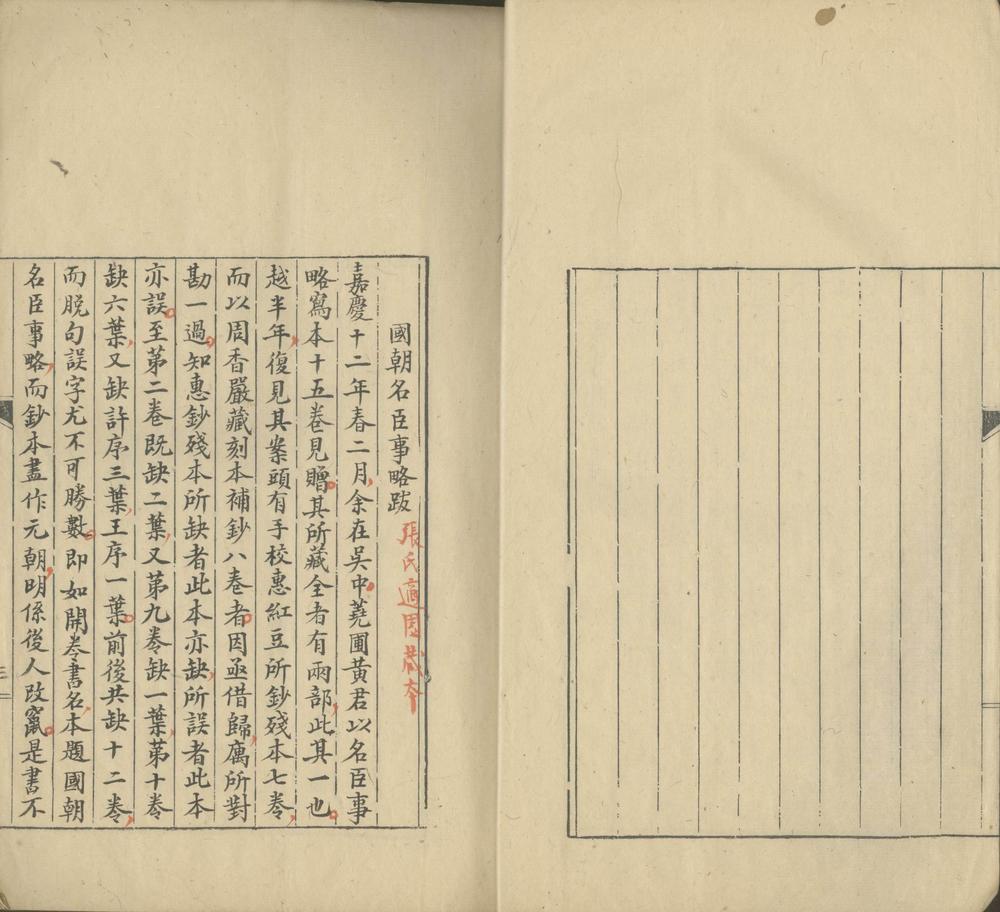 國朝名臣事略跋 張氏適園藏本
嘉慶十二年春二月余在吳中蕘圃黃君以名臣事
略寫本十五卷見贈其所藏全者有兩部此其一也
越半年復見其案頭有手校惠紅豆所鈔殘本七卷
而以周香嚴藏刻本補鈔八卷者因亟借歸寓所對
勘一過知惠鈔殘本所缺者此本亦缺所誤者此本
亦誤至第二卷既缺二葉又第九卷缺一葉第十卷
缺六葉又缺許序三葉王序一葉前後共缺十二卷
而脫句誤字尤不可勝數即如開卷書名本題國朝
名臣事略而鈔本盡作元朝明係後人改竄是書不